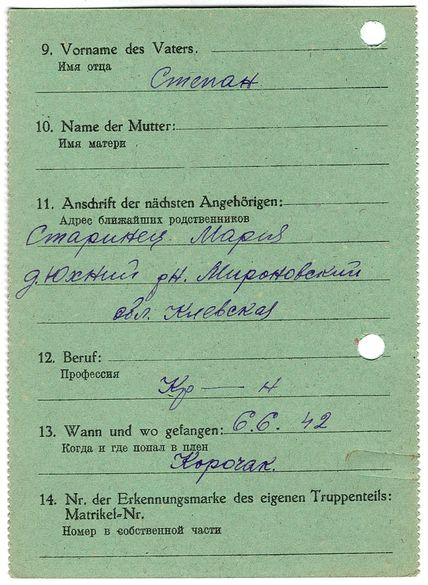 9. Vorname des Vaters.
Имя отца
Степан
10. Name der Mutter:
Имя матери
11. Anschrift der nächsten Angehörigen:
Адрес ближайших родственников
Старинец Мария
д. Юхний рн. Мироновский
обл. Киевская
12. Beruf:
Профессия
Кр — н
13. Wann und wo gefangen: 6.6. 42
Когда и где попал в плен
Корочак.
14. Nr. der Erkennungsmarke des eigenen Truppenteils:
Matrikel-Nr.
Номер в собственной части